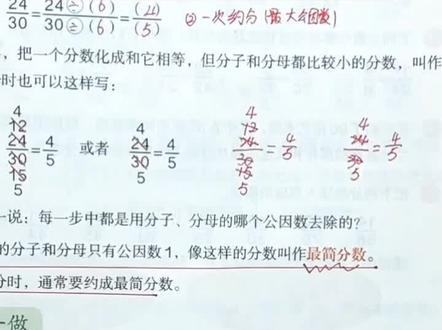 24/30 = 24÷(6)/30÷(6) = (4)/(5) ②一次约分(最大公因数)
，把一个分数化成和它相等，但分子和分母都比较小的分数，叫作
时也可以这样写：
4
12
24/30 = 4/5
15
5
或者
4
24/30 = 4/5
5
4
12
24/30 = 4/5
15
5
4
24/30 = 4/5
5
一说：每一步中都是用分子、分母的哪个公因数去除的？
的分子和分母只有公因数1，像这样的分数叫作最简分数。
分时，通常要约成最简分数。
一做